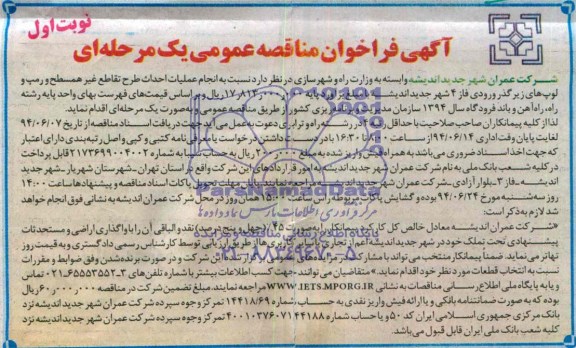 نوبت اول
آگهی فراخوان مناقصه عمومی یک مرحله‌ای
شرکت عمران شهر جدید اندیشه وابسته به وزارت راه و شهرسازی در نظر دارد نسبت به انجام عملیات احداث طرح تقاطع غیر همسطح و رمپ و
لوپ‌های زیرگذر ورودی فاز ۴ شهر جدید اندیشه ریال و براساس قیمت‌های فهرست بهای واحد پایه رشته
راه، راه‌آهن و باند فرودگاه سال ۱۳۹۴ سازمان مدیریت و برنامه‌ریزی کشور از طریق مناقصه عمومی و بصورت یک مرحله‌ای اقدام نماید.
لذا از کلیه پیمانکاران صاحب صلاحیت با حداقل در رشته راه و ترابری دعوت بعمل می‌آید جهت دریافت اسناد مناقصه از تاریخ ۹۴/۰۶/۰۷
لغایت پایان وقت اداری ۹۴/۰۶/۱۴ از ساعت ۸:۰۰ تا ۱۶:۳۰ با در دست داشتن درخواست با معرفی نامه کتبی و کپی واصل رتبه‌بندی دارای اعتبار
که جهت اخذ اسناد ضروری می‌باشد به همراه فیش واریز شده به مبلغ ریال به حساب شماره ۲۱۷۳۶۹۹۰۰۴۰۰۲ قابل پرداخت
در کلیه شعب بانک ملی به نام شرکت عمران شهر جدید اندیشه به امور قراردادهای این شرکت واقع در استان تهران ـ شهرستان شهریار ـ شهر جدید
اندیشه ـ فاز ۳ ـ بلوار آزادی ـ شرکت عمران شهر جدید اندیشه مراجعه نمایند. مهلت تحویل پاکات اسناد مناقصه و پیشنهادها ساعت ۱۴:۰۰
روز سه‌شنبه مورخ ۹۴/۰۶/۲۴ بوده و گشایش پاکات مربوطه راس ساعت ۱۵:۰۰ همان روز در محل شرکت عمران شهر جدید اندیشه به نشانی فوق انجام خواهد
شد لازم به ذکر است:
«شرکت عمران اندیشه معادل خالص کل کارکرد پیمانکار را به صورت ۴۵٪ (چهل و پنج درصد) نقد و الباقی آن را با واگذاری اراضی و مستحدثات
پیشنهادی تحت تملک خود در شهر جدید اندیشه اعم از تجاری یا سایر کاربری‌ها از طریق ارزیابی توسط کارشناس رسمی دادگستری و به قیمت روز
تهاتر می‌نماید. ضمناً پیمانکار منتخب می‌تواند با مشارکت شرکت و در صورت برنده شدن وفق ضوابط و مقررات
نسبت به انتخاب قطعات مورد نظر خود اقدام نماید.» متقاضیان می‌توانند جهت کسب اطلاعات بیشتر با شماره تلفن‌های ۳ـ۶۵۵۵۳۵۵۲ـ۰۲۱ تماس
و یا به پایگاه ملی اطلاع‌رسانی مناقصات به نشانی WWW.IETS.MPORG.IR مراجعه نمایند. مبلغ تضمین شرکت در مناقصه ریال
بوده که به صورت ضمانتنامه بانکی و یا ارائه فیش واریز نقدی به حساب شماره ۱۴۴۱۸/۶۹ تمرکز وجوه سپرده شرکت عمران شهر جدید اندیشه نزد
بانک مرکزی جمهوری اسلامی ایران کد ۵۰ و یا حساب شماره ۴۰۰۱۰۳۷۶۰۷۱۴۴۱۸۸ تمرکز وجوه سپرده شرکت عمران شهر جدید اندیشه نزد
کلیه شعب بانک ملی ایران قابل قبول می‌باشد.
ParsNamadData
مرکز فرآوری اطلاعات پارس نماد داده‌ها
پایگاه اطلاع رسانی مناقصه و مزایده